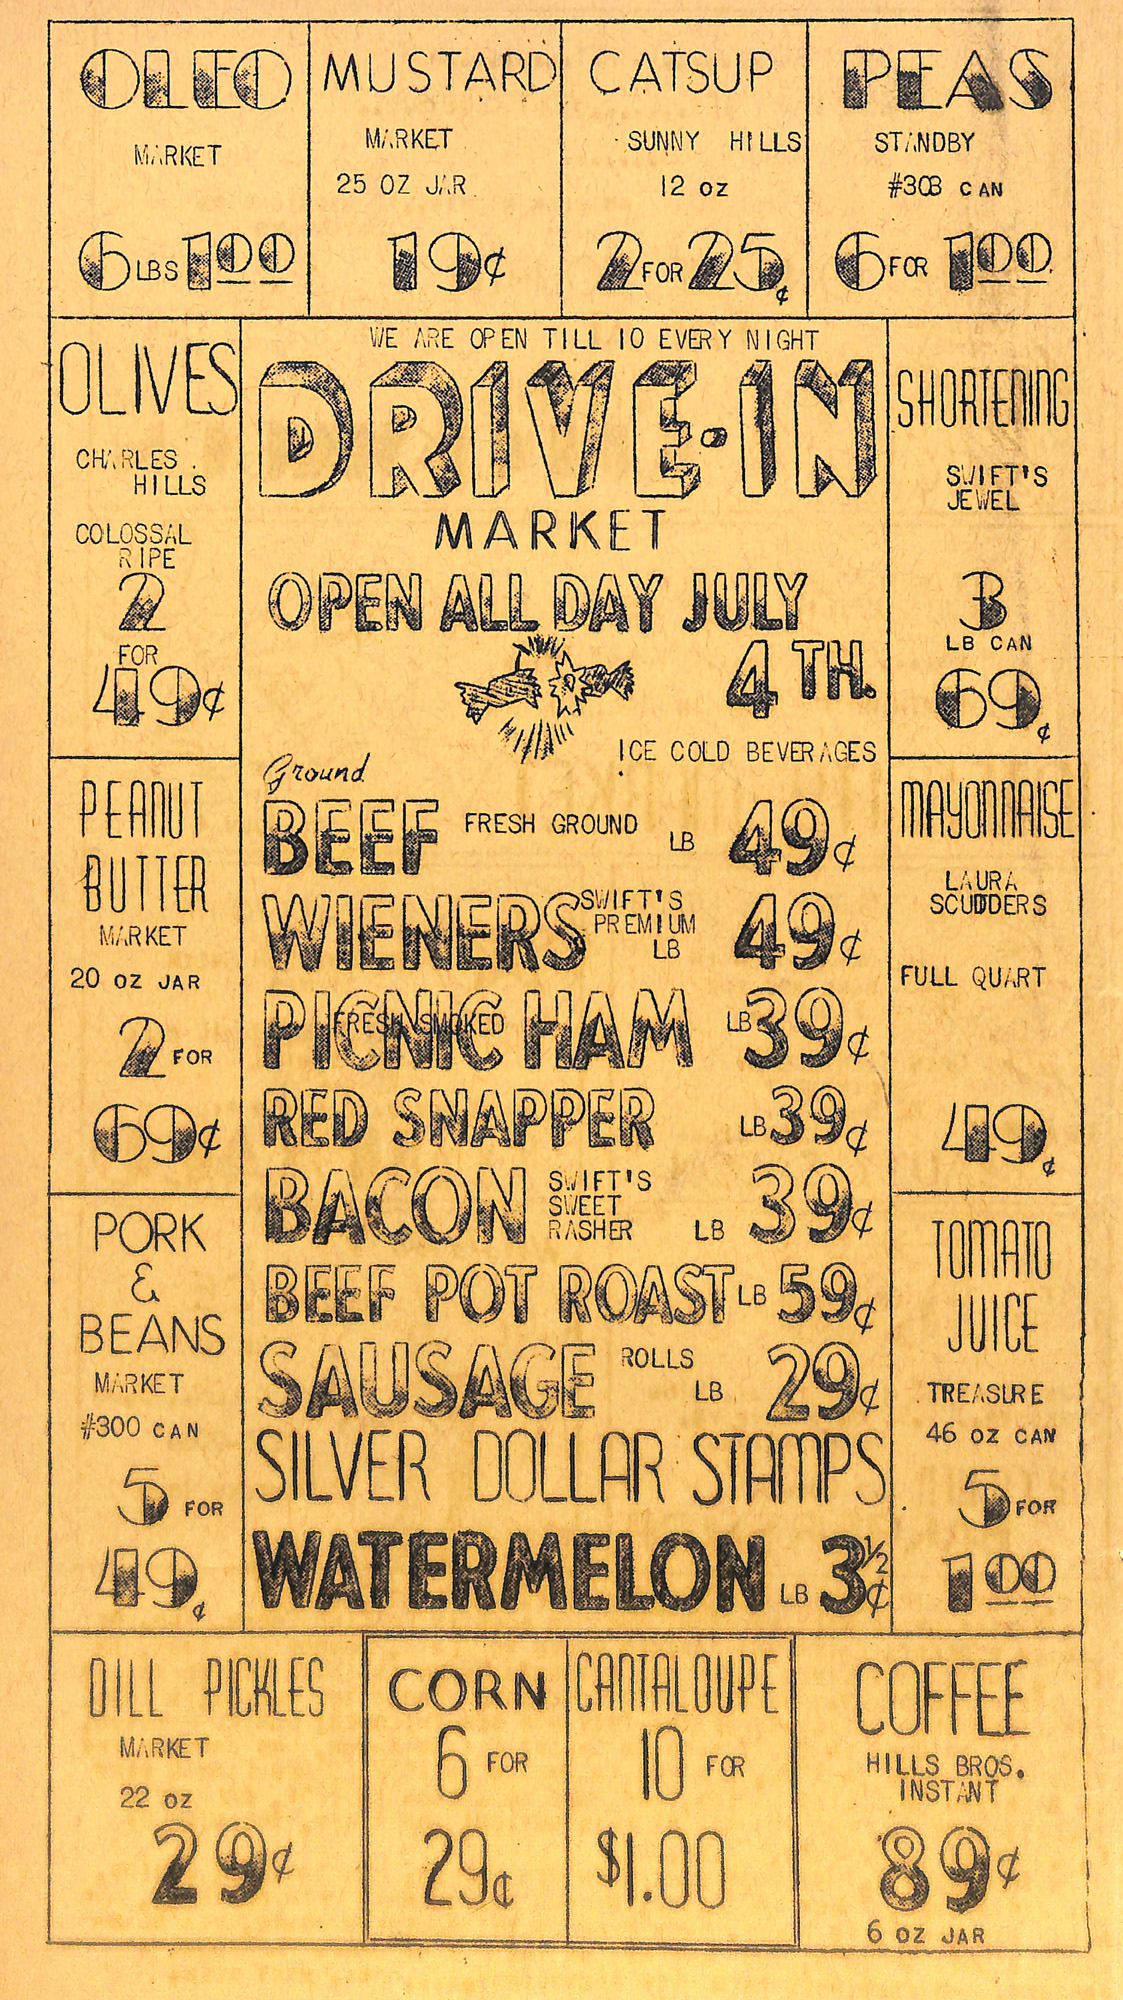 OLEO
MARKET
6 LBS 1.00
MUSTARD
MARKET
25 OZ JAR
19¢
CATSUP
SUNNY HILLS
12 OZ
2 FOR 25¢
PEAS
STANDBY
#303 CAN
6 FOR 1.00
OLIVES
CHARLES
HILLS
COLOSSAL
RIPE
2
FOR
49¢
PEANUT
BUTTER
MARKET
20 OZ JAR
2 FOR
69¢
PORK
&
BEANS
MARKET
#300 CAN
5 FOR
49¢
WE ARE OPEN TILL 10 EVERY NIGHT
DRIVE-IN
MARKET
OPEN ALL DAY JULY
4TH.
ICE COLD BEVERAGES
Ground
BEEF FRESH GROUND LB 49¢
WIENERS SWIFT'S PREMIUM LB 49¢
PICNIC HAM FRESH SMOKED LB 39¢
RED SNAPPER LB 39¢
BACON SWIFT'S SWEET RASHER LB 39¢
BEEF POT ROAST LB 59¢
SAUSAGE ROLLS LB 29¢
SILVER DOLLAR STAMPS
WATERMELON LB 3½¢
SHORTENING
SWIFT'S
JEWEL
3
LB CAN
69¢
MAYONNAISE
LAURA
SCUDDERS
FULL QUART
49¢
TOMATO
JUICE
TREASURE
46 OZ CAN
5 FOR
1.00
DILL PICKLES
MARKET
22 OZ
29¢
CORN
6 FOR
29¢
CANTALOUPE
10 FOR
$1.00
COFFEE
HILLS BROS.
INSTANT
89¢
6 OZ JAR